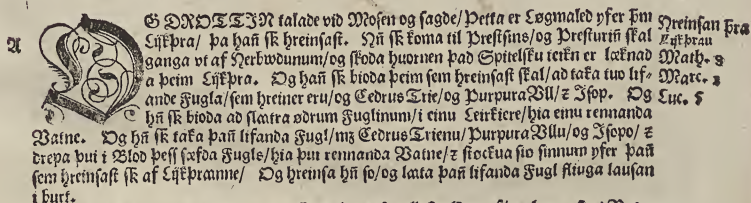 OG DROTTIN talade vid Mosen og sagde/ Þetta er Løgmaled yfer þm
Lijkþra/ þa hañ sk hreinsast. Hñ sk koma til Prestsins/ og Presturiñ skal
ganga vt af Herbwdunum/ og skoda huornen þad Spitelsku teikn er læknad
a þeim Lijkþra. Og hañ sk bioda þeim sem hreinsast skal/ ad taka tuo lif-
ande Fugla/ sem hreiner eru/ og Cedrus Trie/ og Purpura Vll/ ꝛ Isop. Og
hñ sk bioda ad slatra ødrum Fuglinum/ i einu Leirkiere/ hia einu rennanda
Vatne. Og hñ sk taka þañ lifanda Fugl/ mz Cedrus Trienu/ Purpura Vllu/ og Isopo/ ꝛ
drepa þui i Blod þess sæfda Fugls/ hia þui rennanda Vatne/ ꝛ støckua sio sinnum yfer þañ
sem hreinsast sk af Lijkþraanne/ Og hreinsa hñ so/ og læta þañ lifanda Fugl fliuga lausan
i burt.
A
Hreinsan fra
Lijkþrau
Math. 8
Marc. 1
Luc. 5